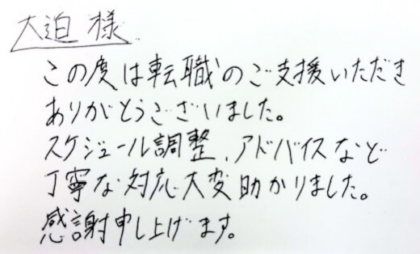 大迫 様
この度は転職のご支援いただき
ありがとうございました。
スケジュール調整、アドバイスなど
丁寧な対応大変助かりました。
感謝申し上げます。